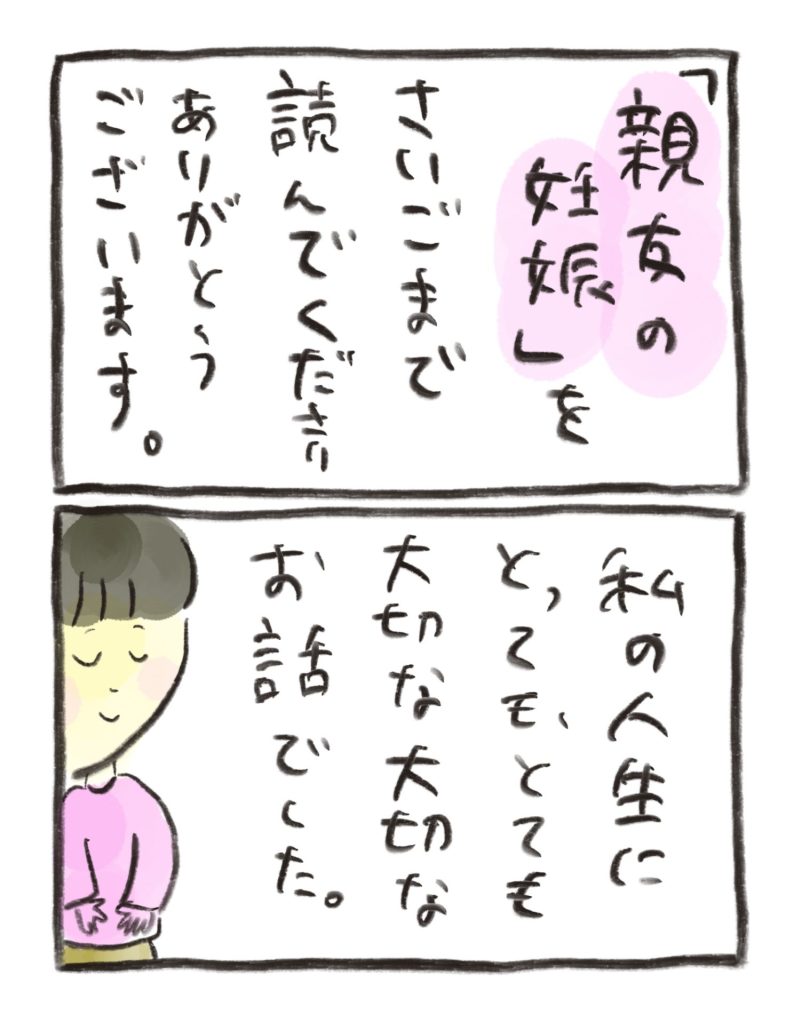 「親友の
妊娠」を
さいごまで
読んでくださり
ありがとう
ございます。
私の人生に
とっても、とても
大切な大切な
お話でした。